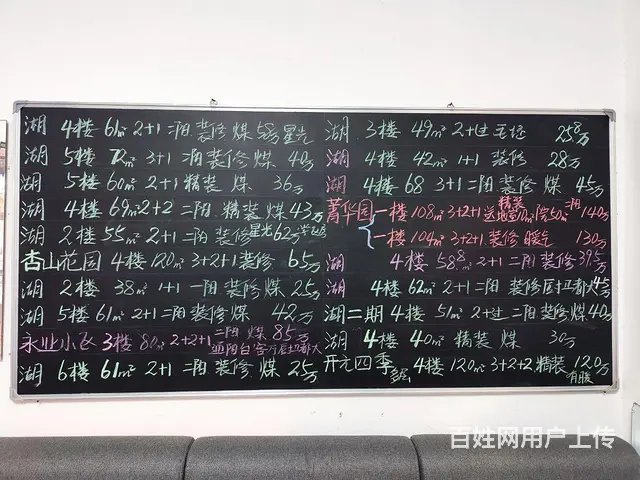 湖 4楼 61m² 2+1 二阳 装修 煤 58万 星光
湖 5楼 72m² 3+1 二阳 装修 煤 40万
湖 5楼 60m² 2+1 精装 煤 36万
湖 4楼 69m² 2+2 二阳 精装 煤 43万
湖 2楼 55m² 2+1 一阳 装修 星光 62万
杏山花园 4楼 120m² 3+2+1 装修 65万
湖 2楼 38m² 1+1 一阳 装修 煤 25万
湖 5楼 61m² 2+1 二阳 装修 煤 42万
永业小区 3楼 80m² 2+2+1 二阳 煤 85万
湖 6楼 61m² 2+1 二阳 装修 煤 25万
湖 3楼 49m² 2+过 毛坯 25.8万
湖 4楼 42m² 1+1 装修 28万
湖 4楼 68 3+1 二阳 装修 煤 45万
菁华园 一楼 108m² 3+2+1 精装 送地室10m² 院50m² 二阳 140万
一楼 104m² 3+2+1 装修 暖气 130万
湖 4楼 58.8m² 2+1 二阳 装修 39.5万
湖 4楼 62m² 2+1 二阳 装修 厨卫都大 45万
湖二期 4楼 51m² 2+过 二阳 装修 煤 40万
湖 4楼 40m² 精装 煤 30万
开元四季 多层 4楼 120m² 3+2+2 精装 120万 有暖
百姓网用户上传